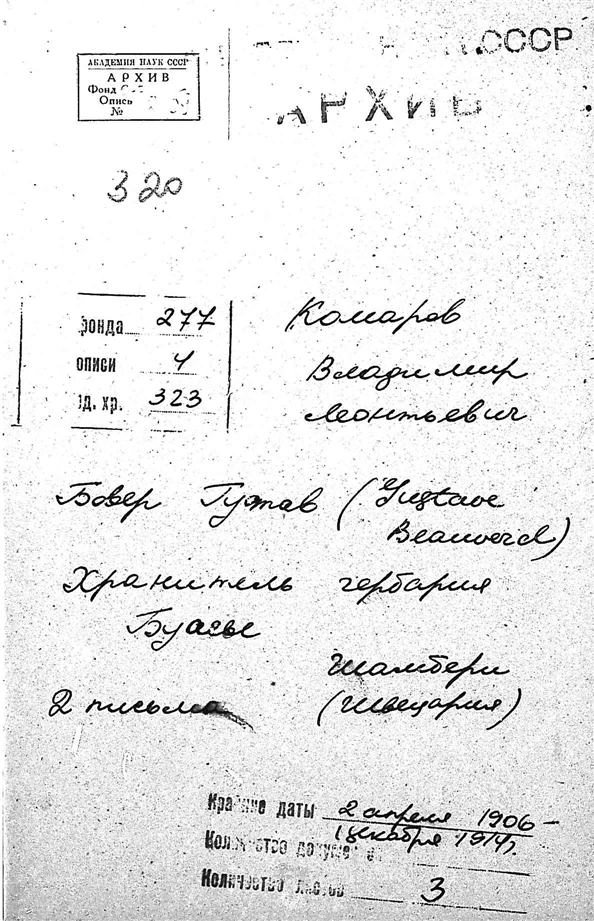 АКАДЕМИЯ НАУК СССР
АРХИВ
Фонд
Опись
№
СССР
АРХИВ
320
фонда 277
описи 4
ед. хр. 323
Комаров
Владимир
Леонтьевич
Бовер Густав (Gustave
Beauverd)
Хранитель гербария
Буасье
Шамбери
(Швецария)
2 письма
Крайние даты 2 апреля 1906 –
1 декабря 1914г.
Количество документов
Количество листов 3